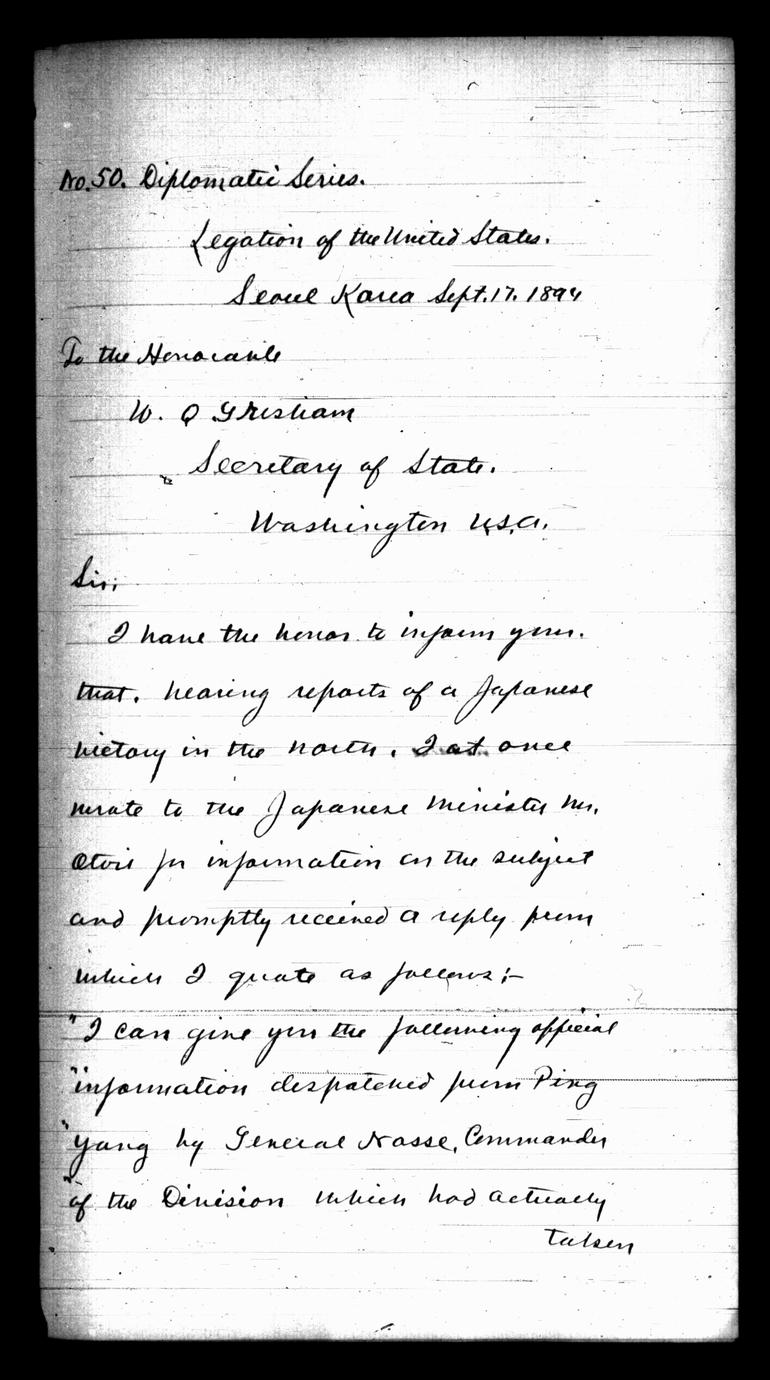 No. 50. Diplomatic Series.
Legation of the United States.
Seoul Korea Sept. 17. 1894
To the Honorable
W. Q Gresham
Secretary of State.
Washington U.S.A.
Sir;
I have the honor to inform you.
that. hearing reports of a Japanese
victory in the north, I at once
wrote to the Japanese Minister Mr.
Otori for information on the subject
and promptly received a reply from
which I quote as follows;-
"I can give you the following official
"information despatched from Ping
"yang by General Nosse, Commander
"of the Division which had actually
taken